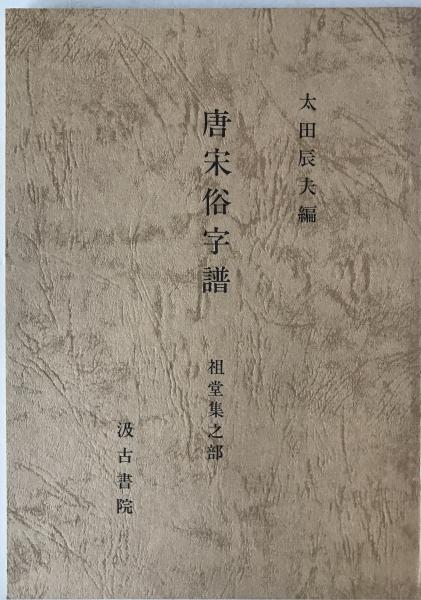 太田辰夫編
唐宋俗字譜
祖堂集之部
汲古書院